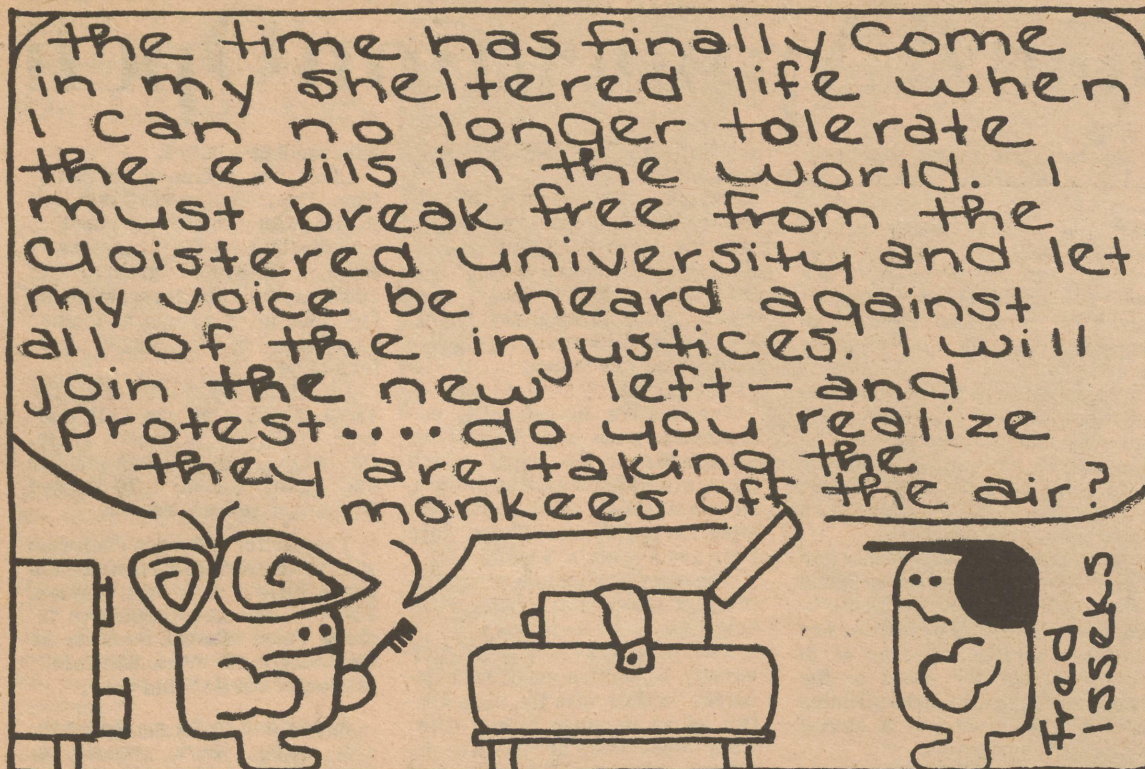 the time has finally come
in my sheltered life when
I can no longer tolerate
the evils in the world. I
must break free from the
cloistered university and let
my voice be heard against
all of the injustices. I will
join the new left — and
protest.... do you realize
they are taking the
monkees off the air?
Fred
Isseks